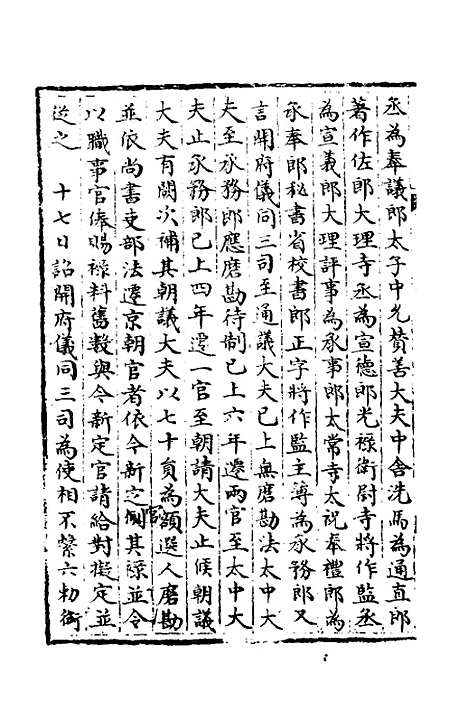 丞為奉議郎太子中允賛善大夫中舍洗馬為通直郎
著作佐郎大理寺丞為宣德郎光禄衛尉寺將作監丞
為宣義郎大理評事為承事郎太常寺太祝奉禮郎為
承奉郎秘書省校書郎正字將作監主簿為承務郎又
言開府儀同三司至通議大夫已上無磨勘法太中大
夫至承務郎應磨勘待制已上六年遷兩官至太中大
夫止承務郎已上四年遷一官至朝請大夫止候朝議
大夫有闕次補其朝議大夫以七十員為額選人磨勘
並依尚書吏部法遷京朝官者依今新定官制其禄並令
以職事官俸賜禄料舊數與今新定官請給對擬定並
從之　十七日詔開府儀同三司為使相不繫六勑銜